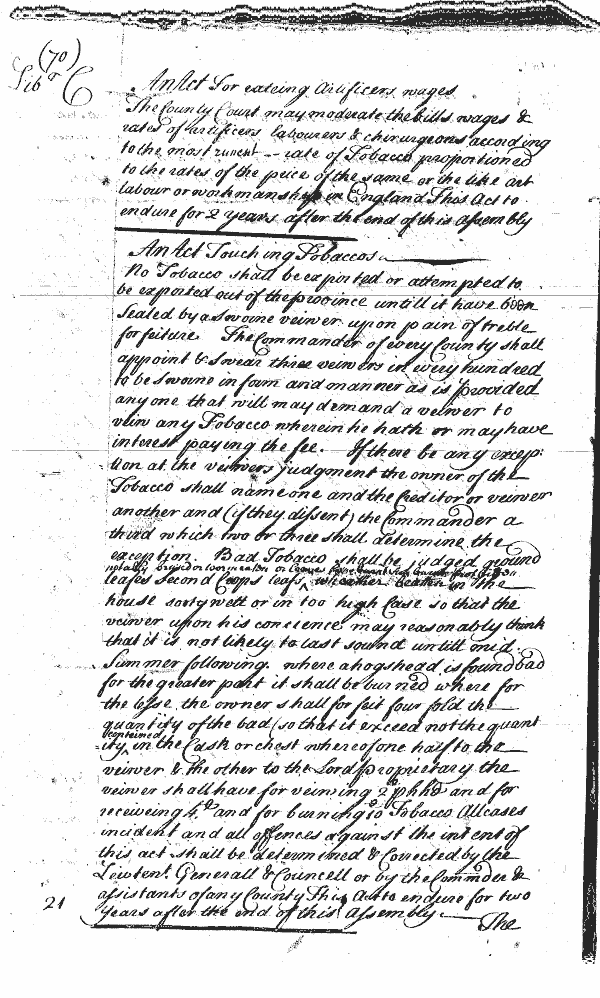 (70)
Libr C
An Act For rateing Artificers wages
The County Court may moderate the bills wages &
rates of artificers labourers & chirurgeons according
to the most current - rate of Tobacco proportioned
to the rates of the price of the same or the like art
labour or workmanship in England This Act to
endure for 2 years after the end of this Assembly
An Act Touching Tobaccos
No Tobacco shall be exported or attempted to
be exported out of the province untill it have been
Sealed by a sworne veiwer upon pain of treble
forfeiture The Commander of every County shall
appoint & swear three veiwers in every hundred
to be sworne in form and manner as is provided
any one that will may demand a veiwer to
veiw any Tobacco wherein he hath or may have
interest paying the fee. If there be any excep:
tion at the veiwers judgment the owner of the
Tobacco shall name one and the Creditor or veiwer
another and (if they dissent) the Commander a
third which two or three shall determine the
exception. Bad Tobacco shall be judged ground
leafes Second Crops leafs, wheather beaten in the
house sorty wett or in too high Case so that the
veiwer upon his concience may reasonably think
that it is not likely to last sound untill mid
Summer following. where a hogshead is found bad
for the greater part it shall be burned where for
the lesse the owner shall forfeit four fold the
quantity of the bad (so that it exceed not the quant
contained
ity, in the Cask or chest whereof one half to the
veiwer & the other to the Lord proprietary the
veiwer shall have for veiwing 2 p hhd and for
receiveing 4 and for burning 10 Tobacco All cases
incident and all offences against the intent of
this act shall be determined & Corrected by the
Lieutent. Generall & Councell or by the Commder &
assistants of any County This Act to endure for two
21 years after the end of this Assembly.
The